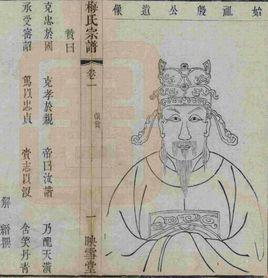 始祖殷公遺像
梅氏宗譜 卷一 像贊 一 映雪堂
贊曰
克忠於國 克孝於親 帝曰汝諧 乃 天漢
承受密詔 篤以忠貞 賫志以沒 含笑丹青
解縉撰